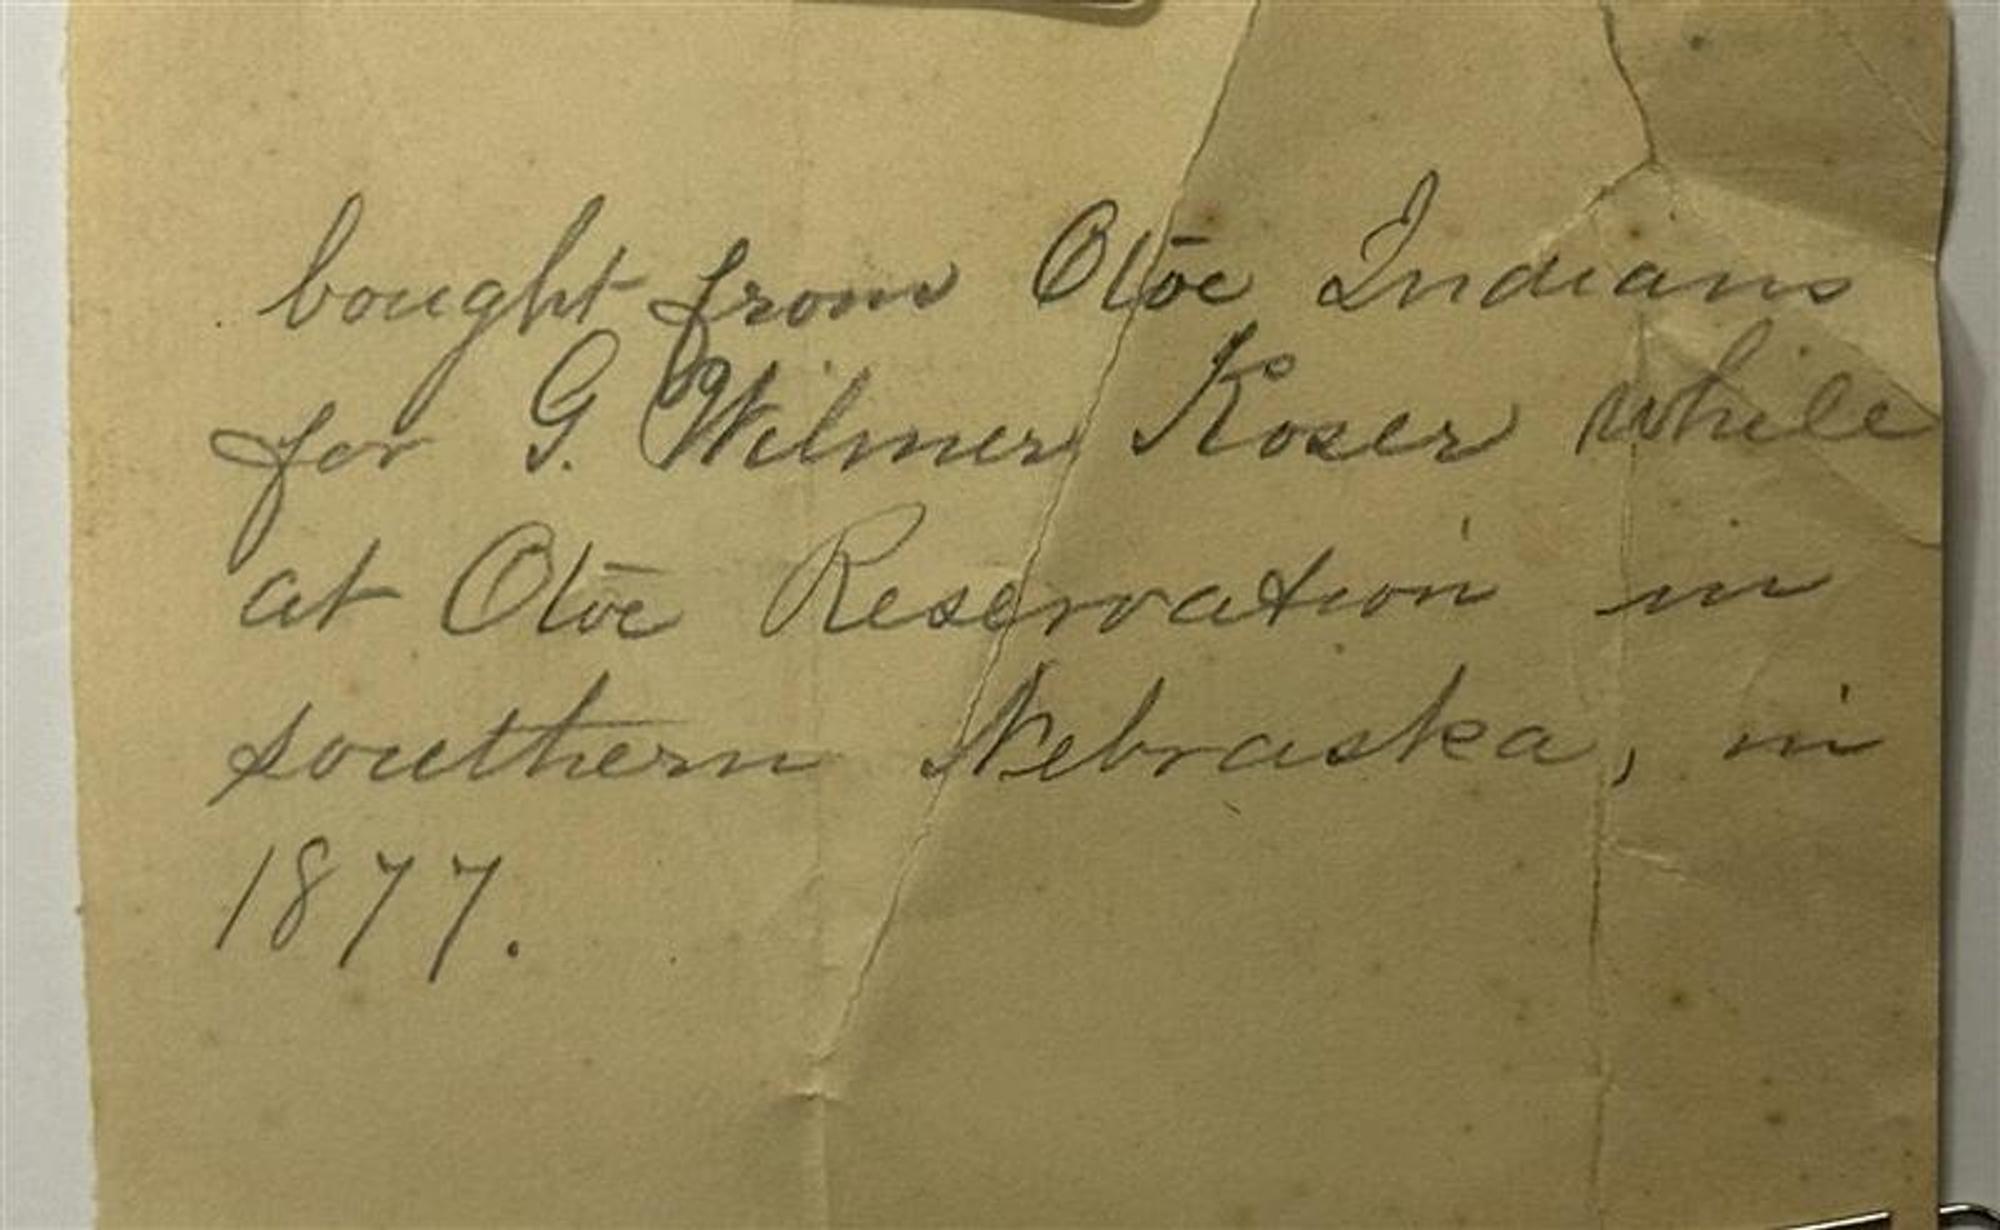 bought from Otōe Indians
for G. Wilmer Koser while
at Otōe Reservation in
southern Nebraska, in
1877.